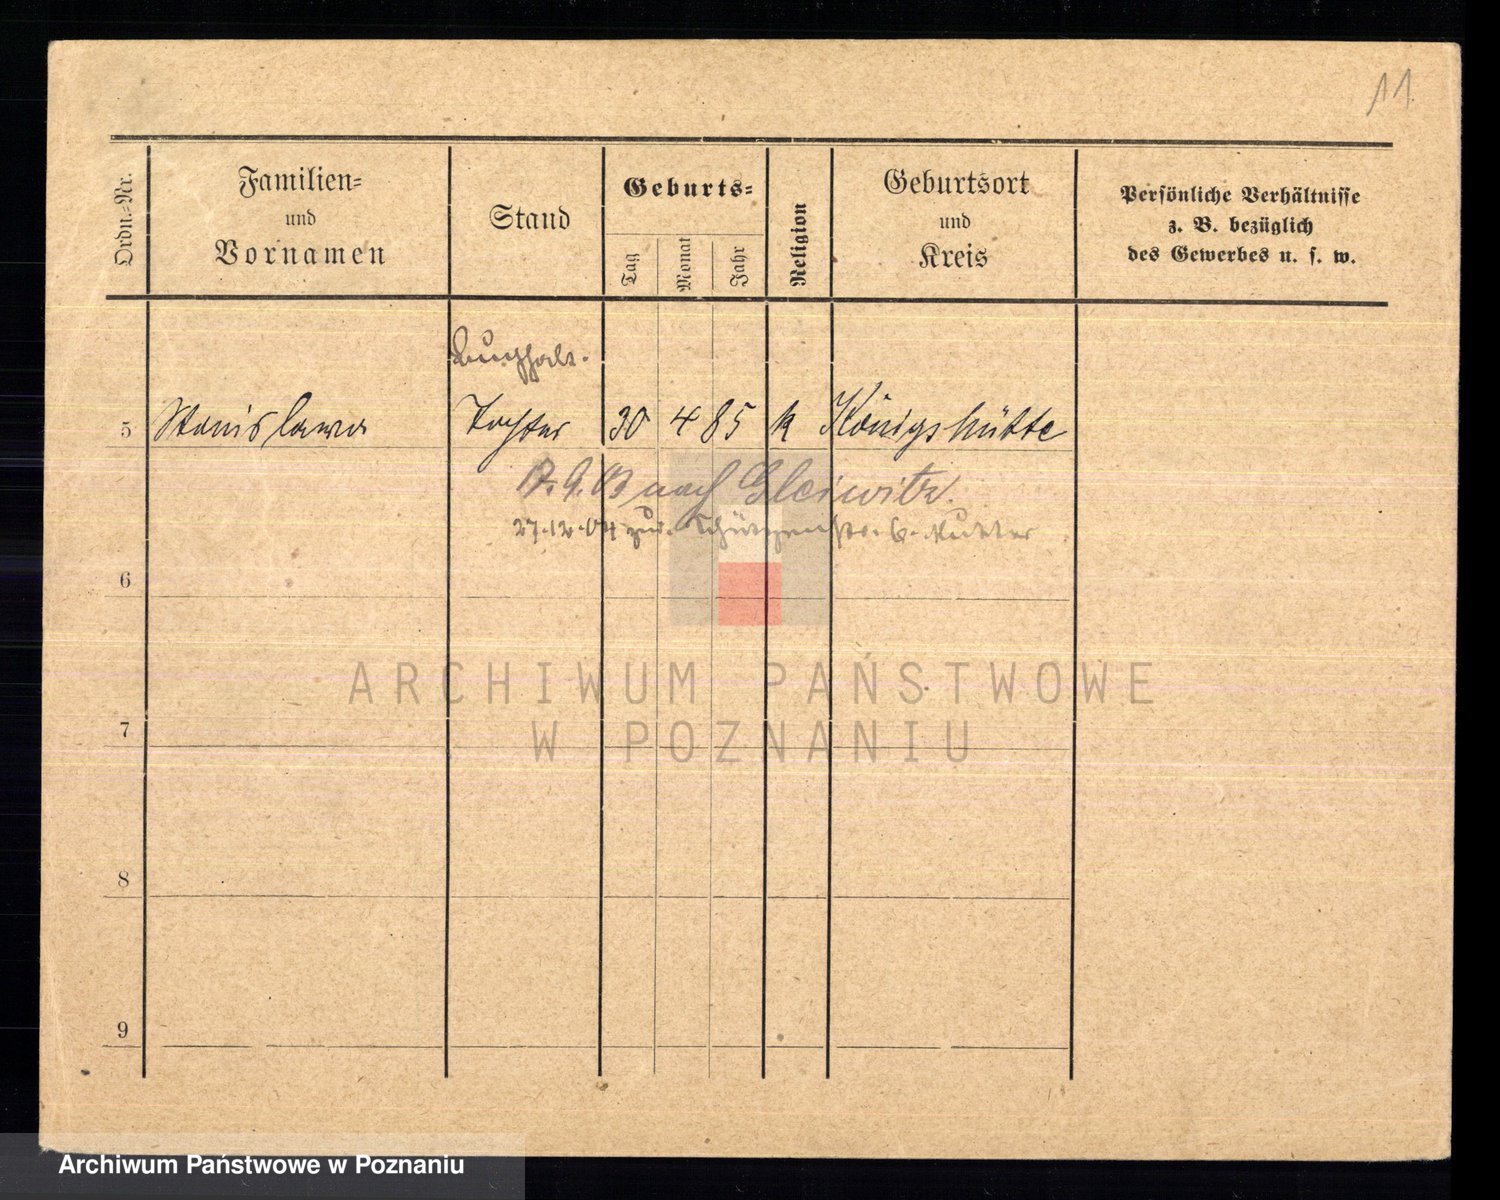 11
Ordn.-Nr.
Familien-
und
Vornamen
Stand
Geburts-
Tag
Monat
Jahr
Religion
Geburtsort
und
Kreis
Persönliche Verhältnisse
z. B. bezüglich
des Gewerbes u. s. w.
5 Stanislawa Tochter 30 4 85 k Königshütte
nach Gleiwitz.
27.12.04 zur. Schützenstr. 6. Mutter
6
7
8
9
ARCHIWUM PAŃSTWOWE
W POZNANIU
Archiwum Państwowe w Poznaniu